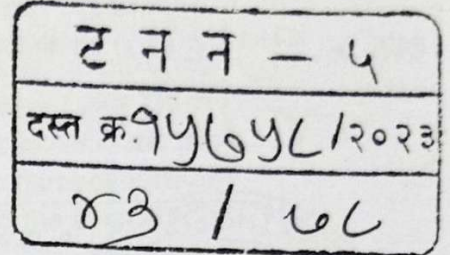 ट न न - ५
दस्त क्र. १५७५८ / २०२३
४३ / ७८